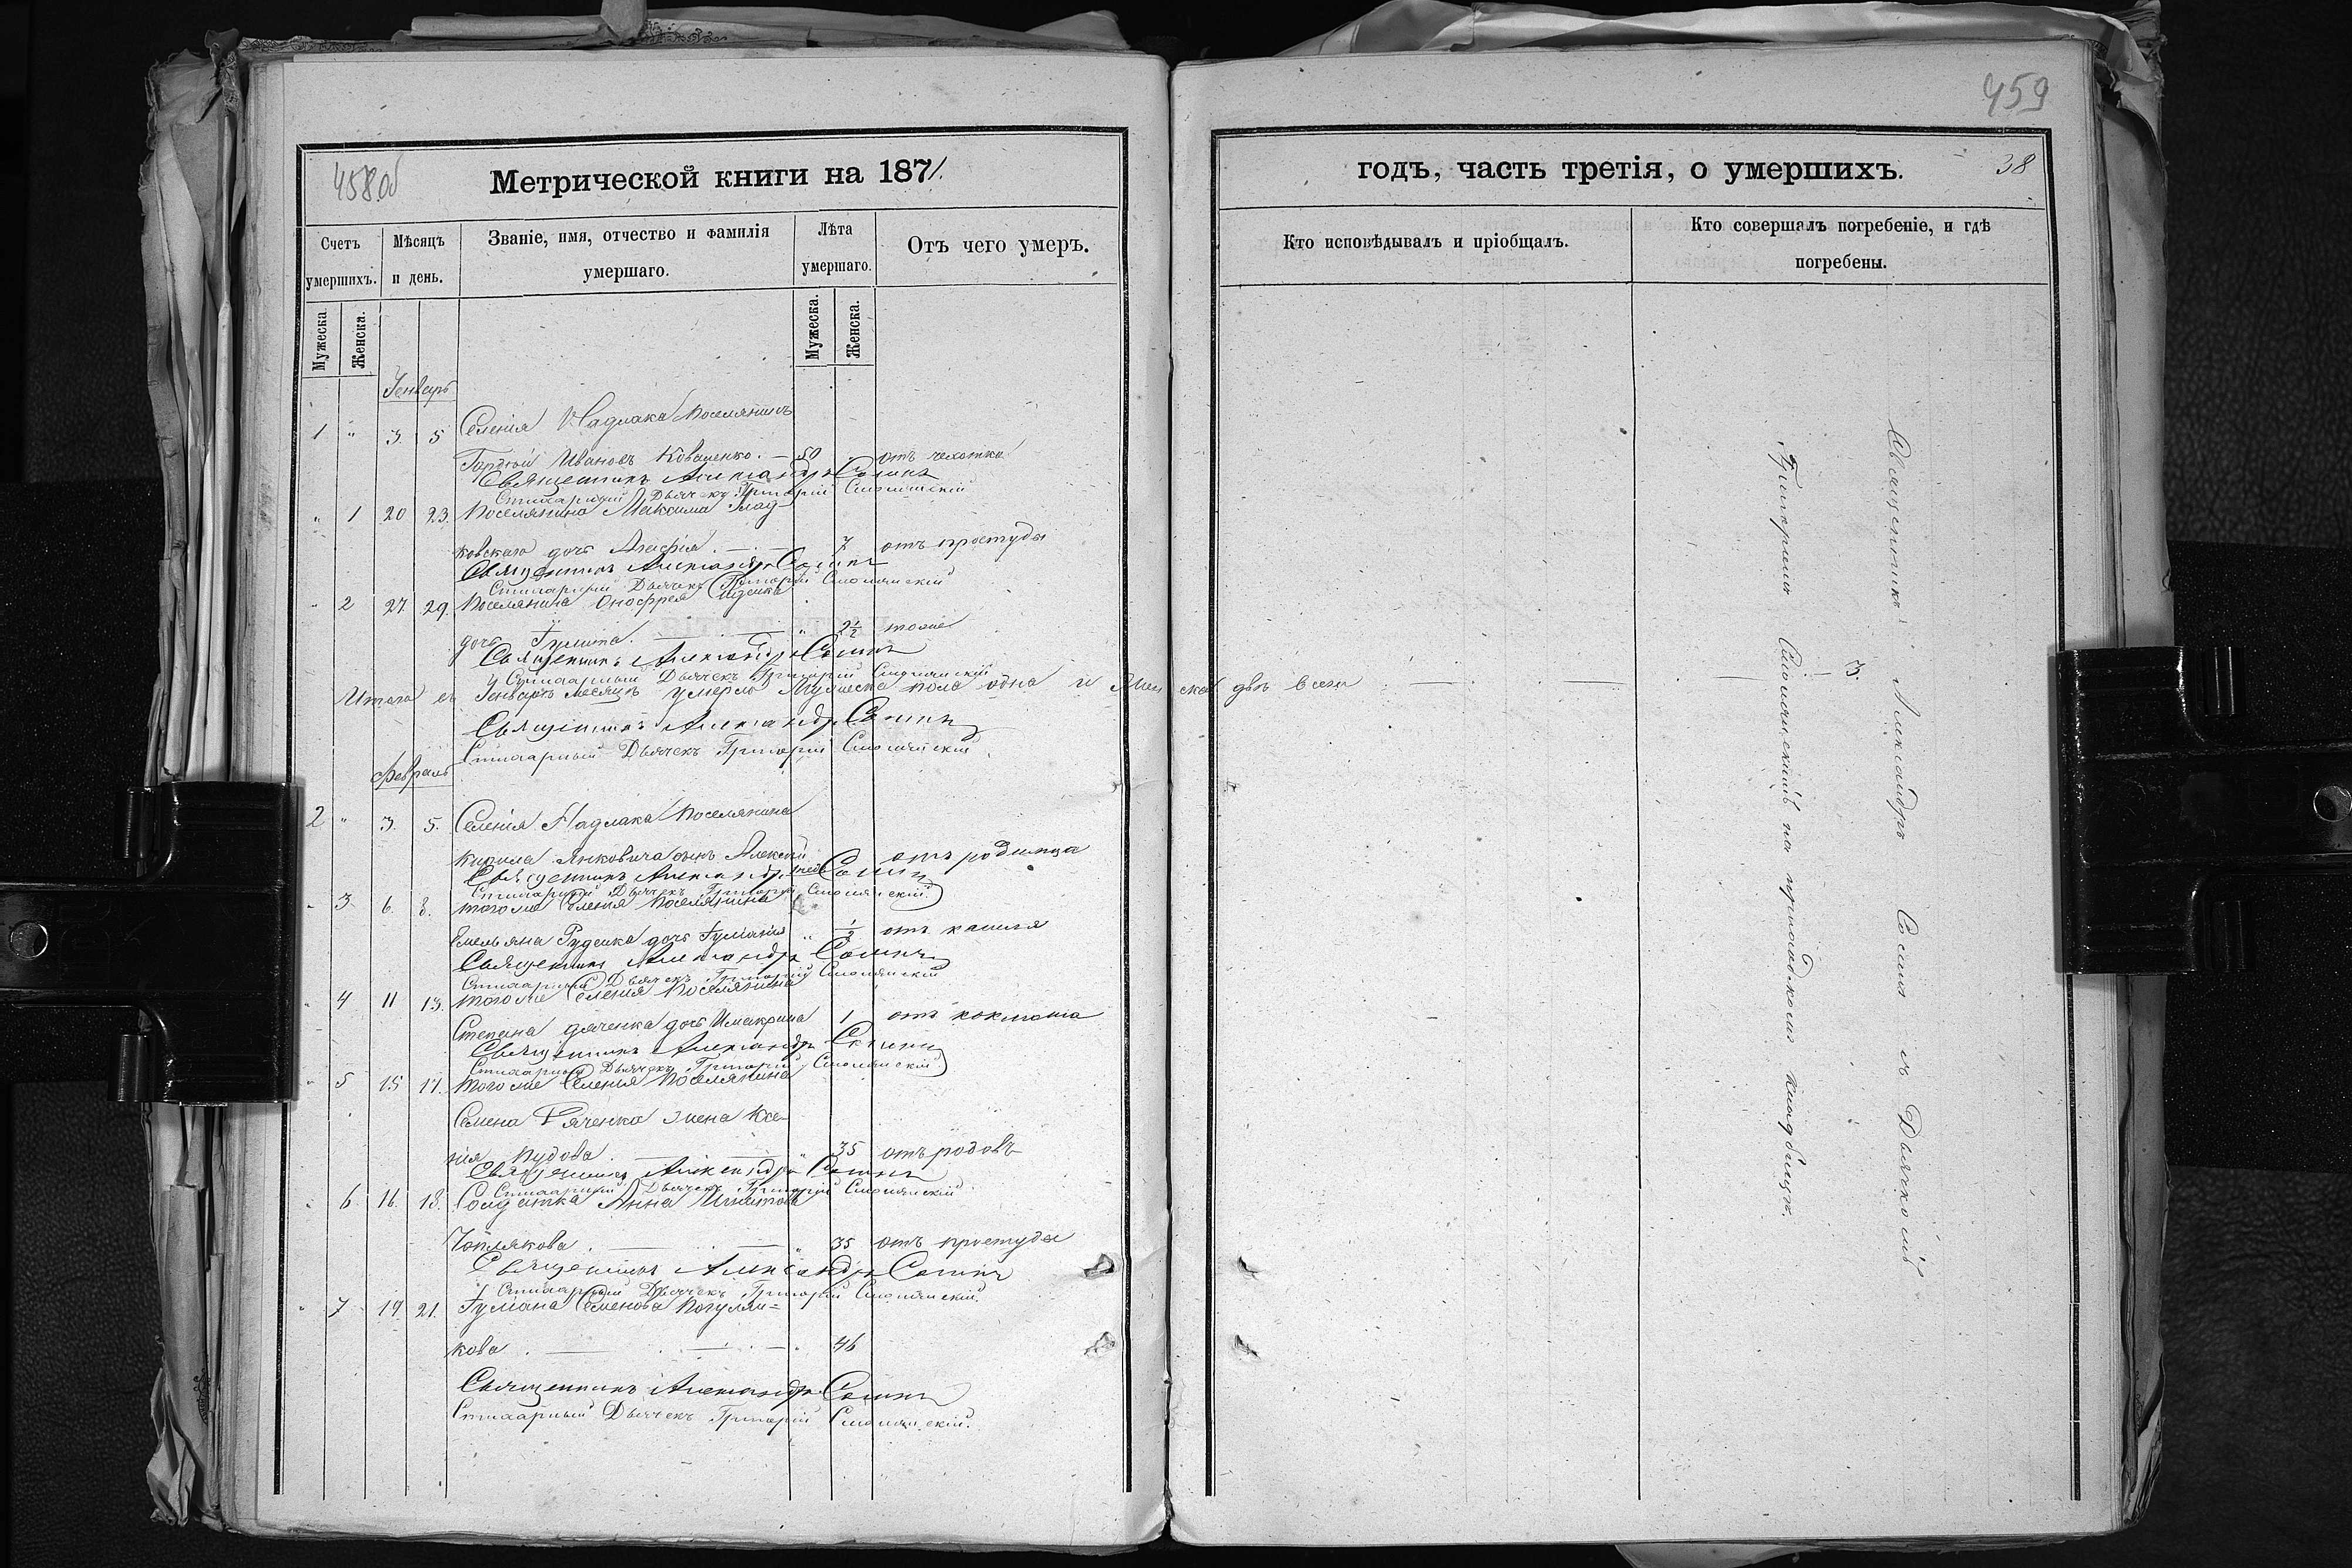 458об
Метрической книги на 1871.
Счетъ умершихъ.
Мѣсяцъ и день.
Званіе, имя, отчество и фамилія умершаго.
Лѣта умершаго.
Отъ чего умеръ.
Мужеска.
Женска.
Мужеска.
Женска.
Генварь
1 " 3. 5 Селенія Надлака Поселянинъ
Гордѣй Ивановъ Коваленко. — 50 отъ чахотки
Священникъ Александръ Соминъ
Стихарный Дьячекъ Григорій Смолянскій
" 1 20 23. Поселянина Максима
ковскаго дочь Агафія . — . — 7 отъ простуды
Священникъ Александръ Соминъ
Стихарный Дьячекъ Григорій Смолянскій
" 2 27. 29. Поселянина Онофрея
дочь . — . — " 2½ тоже
Священникъ Александръ Соминъ
Стихарный Дьячекъ Григорій Смолянскій
Итого въ Генварѣ месяцѣ умерло Мужеска пола одна и Женска двѣ всего — . — . — 3.
Священникъ Александръ Соминъ
Стихарный Дьячекъ Григорій Смолянскій
Февраль
2 " 3. 5. Селенія Надлака Поселянина
Кирила Янковича сынъ Алексей отъ родимца
Священникъ Александръ Соминъ
Стихарный Дьячекъ Григорій Смолянскій
" 3 6. 8. тогоже Селенія Поселянина
Емельяна Руденка дочь Гуліанія " ½ отъ кашля
Священникъ Александръ Соминъ
Стихарный Дьячекъ Григорій Смолянскій
" 4 11 13. тогоже Селенія Поселянина
Степана Дяченка дочь 1 отъ коклюша
Священникъ Александръ Соминъ
Стихарный Дьячекъ Григорій Смолянскій
" 5 15 17. тогоже Селенія Поселянина
Семена Дяченка жена Ксе-
нія Кудова . — " 35 отъ родовъ
Священникъ Александръ Соминъ
Стихарный Дьячекъ Григорій Смолянскій
" 6 16. 18. Солдатка Анна
— . — " 35 отъ простуды
Священникъ Александръ Соминъ
Стихарный Дьячекъ Григорій Смолянскій.
" 7 19 21. Гуліана Семенова
кова . — . — . — . 46
Священникъ Александръ Соминъ
Стихарный Дьячекъ Григорій Смолянскій.
459
годъ, часть третія, о умершихъ.
38
Кто исповѣдывалъ и пріобщалъ.
Кто совершалъ погребеніе, и гдѣ погребены.
Священникъ Александръ Сомин съ Дьячкомъ
Григоріемъ Смолянскимъ на приходскомъ кладбищѣ.